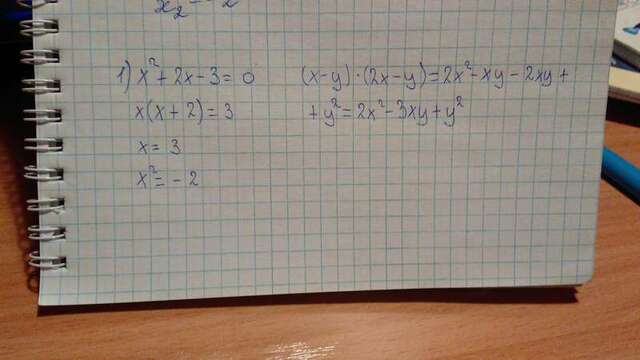 x₂ = -2
1) x² + 2x - 3 = 0
x(x + 2) = 3
x = 3
x² = -2
(x-y)·(2x-y)=2x²-xy-2xy+
+y²=2x²-3xy+y²